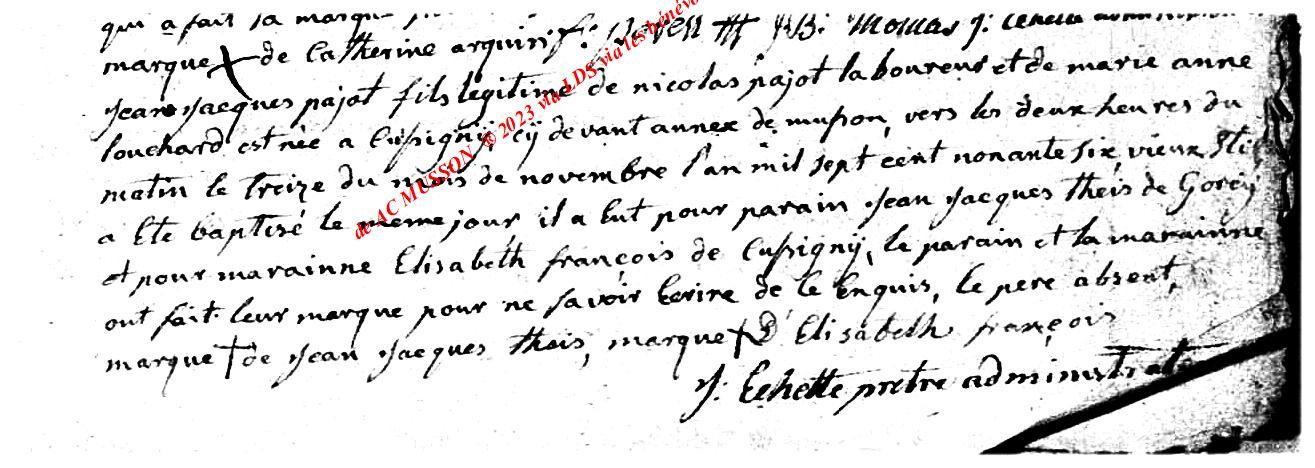 qui a fait sa marque
marque X de Catherine arquin f: J: Thomas J:
Jean Jacques pajot fils legitime de nicolas pajot laboureur et de marie anne
louchard est née a Cussignÿ, cÿ devant annex de musson, vers les deux heures du
matin le treize du mois de novembre l'an mil sept cent nonante six vieux stil
a Ete baptisé le meme jour il a Eut pour parain Jean Jacques theis de Gorcÿ
et pour marainne Elisabeth françois de Cussignÿ, le parain et la marainne
ont fait leur marque pour ne savoir Ecrire de le Enquis, le pere absent,
marque † de Jean Jacques theis, marque † d'Elisabeth françois
J: Echette pretre administrat
de AC MUSSON © 2023 via LDS via les bénévo